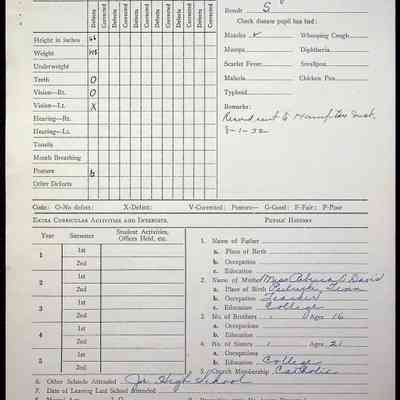 Defects Corrected Defects Corrected Defects Corrected Defects Corrected Defects Corrected Defects Corrected
Result S
Check disease pupil has had:
Height in inches
Weight
Underweight
Teeth O
Vision—Rt. O
Vision—Lt. X
Hearing—Rt.
Hearing—Lt.
Tonsils
Mouth Breathing
Posture
Other Defects
Measles ✓ Whooping Cough
Mumps Diphtheria
Scarlet Fever Smallpox
Malaria Chicken Pox
Typhoid
Remarks:
Record sent to Hampton Inst.
8-1-32
Code: O-No defect: X-Defect: V-Corrected; Posture— G-Good: F-Fair; P-Poor
Extra Curricular Activities and Interests.
Year Semester Student Activities, Offices Held, etc.
1 1st
2nd
2 1st
2nd
3 1st
2nd
4 1st
2nd
5 1st
2nd
Pupils' History
1. Name of Father
a. Place of Birth
b. Occupation
c. Education
2. Name of Mother Miss Davis
a. Place of Birth Tenn
b. Occupation Teacher
c. Education College
3. No. of Brothers 1 Ages 16
a. Occupations
b. Education
4. No. of Sisters 1 Ages 21
a. Occupations
b. Education College
5. Church Membership Catholic
6. Other Schools Attended Jr. High School
7. Date of Leaving Last School Attended